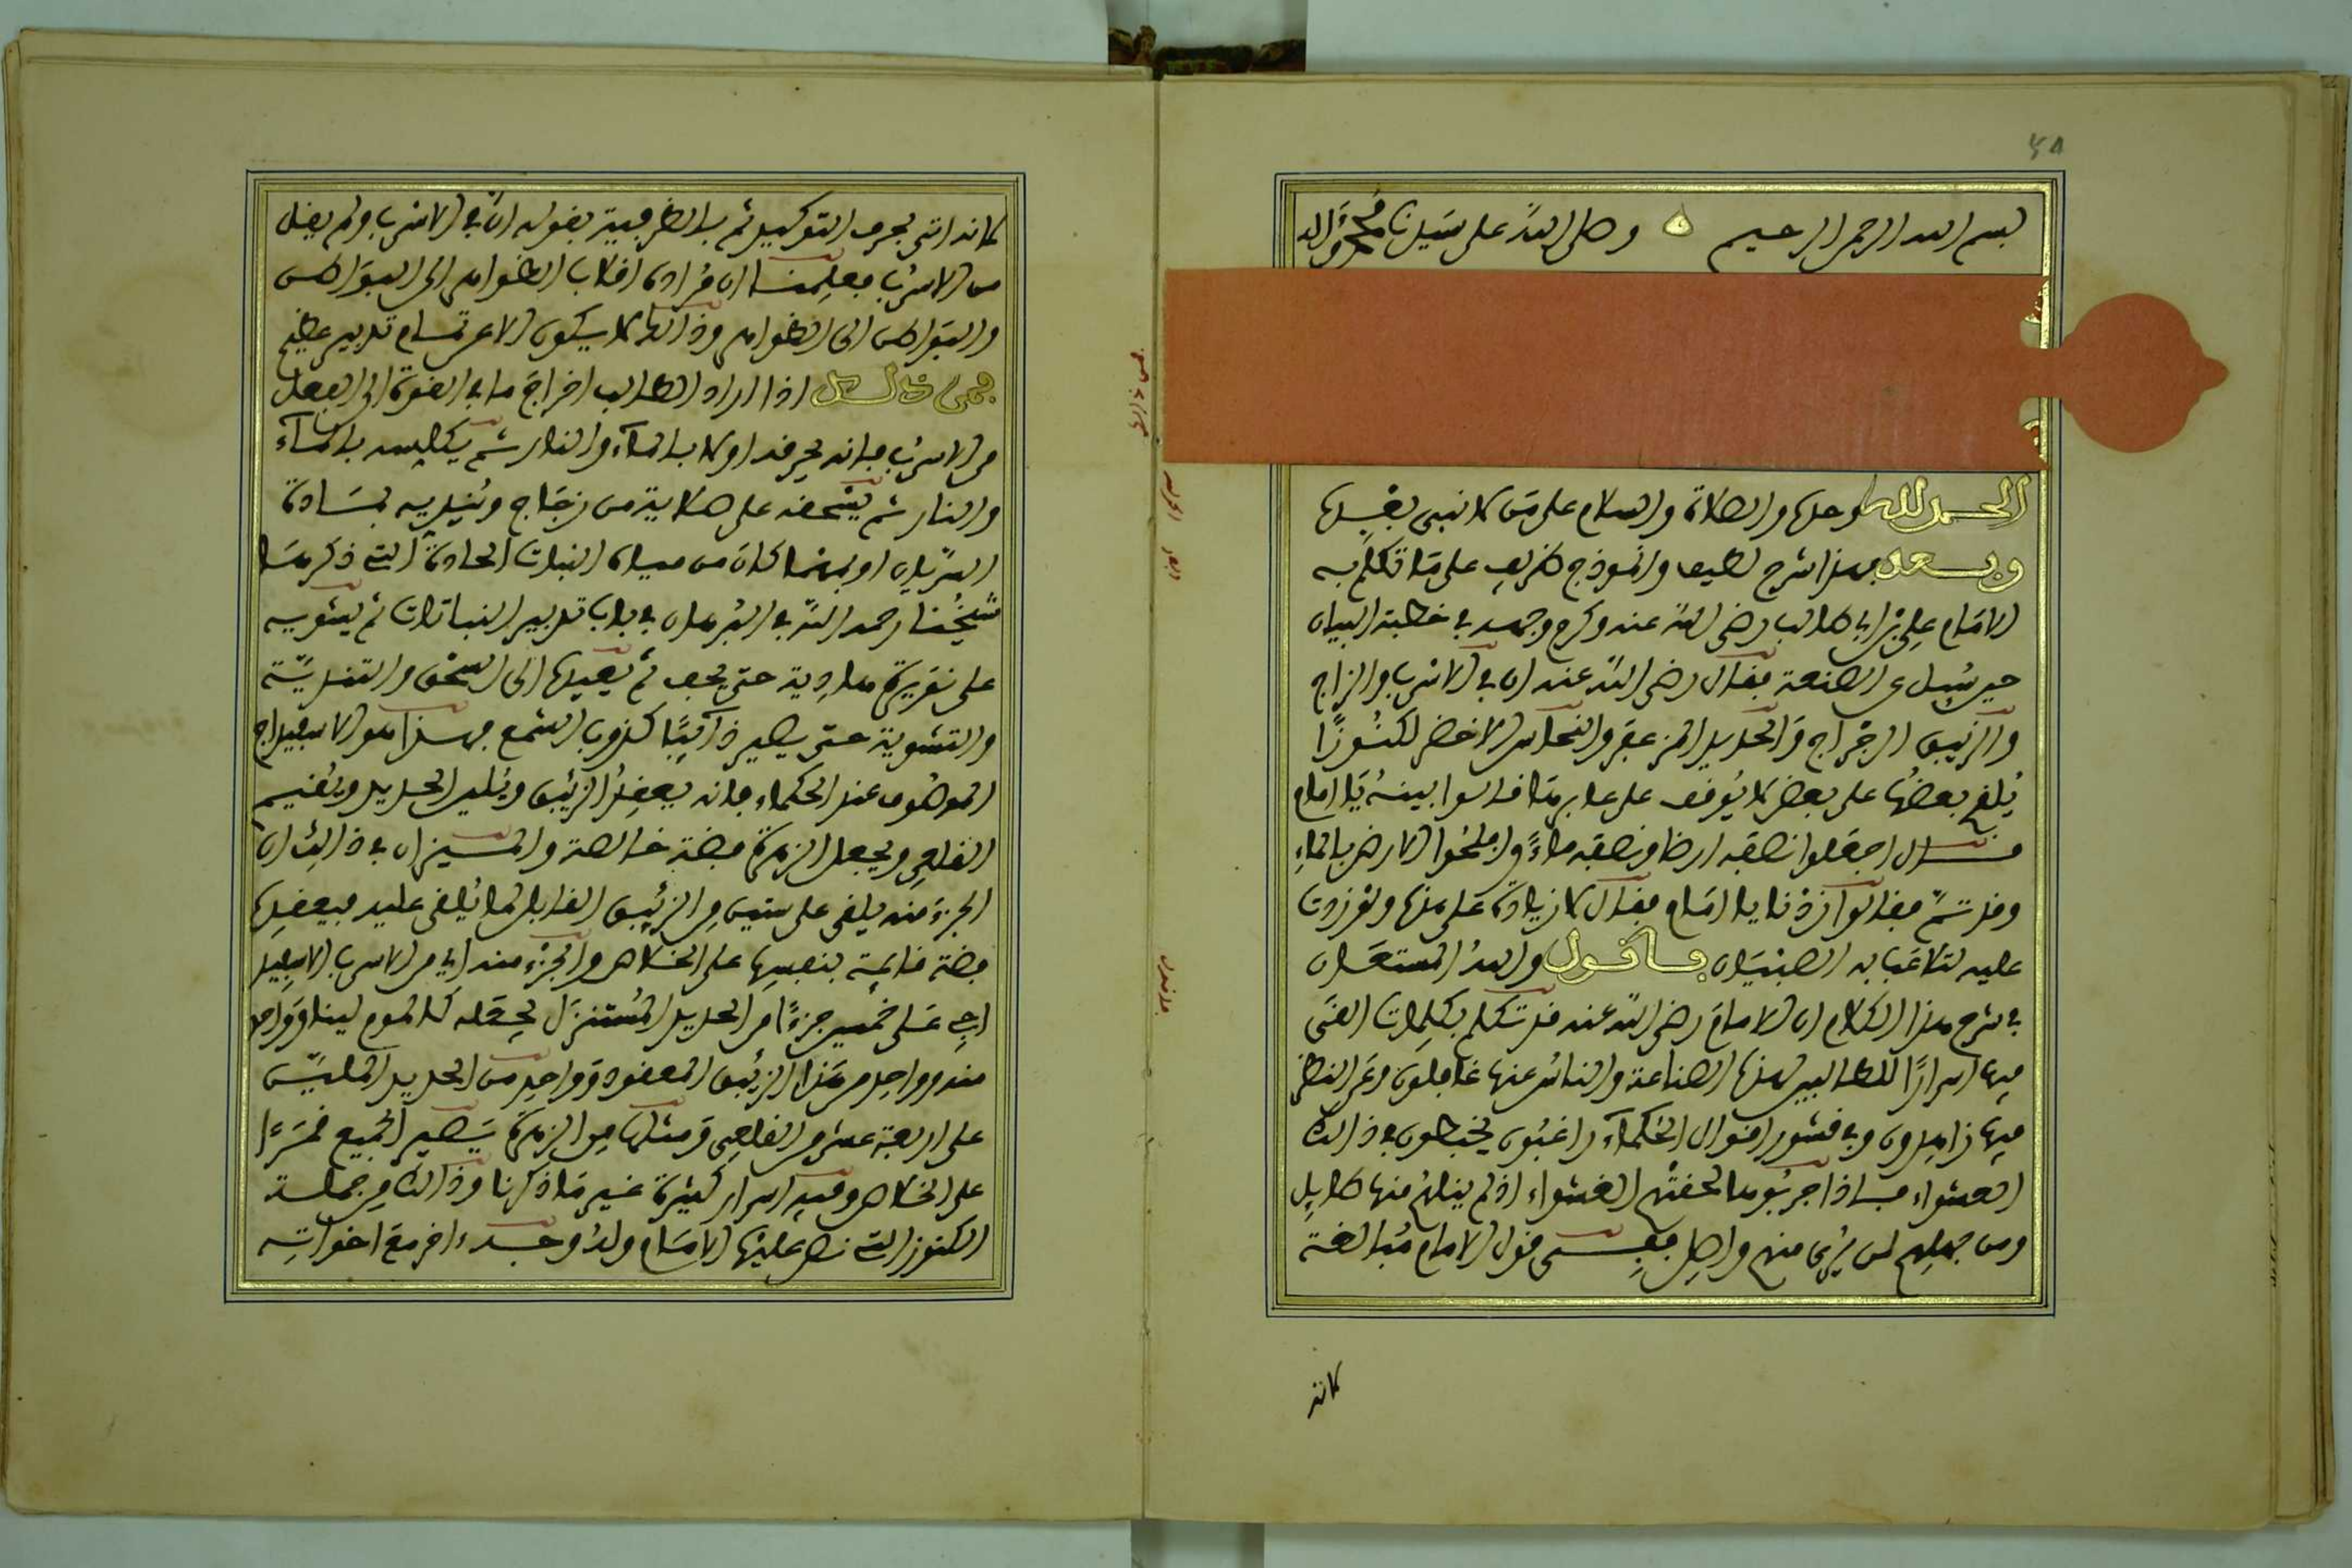 بسم الله الرحمن الرحيم وصلى الله على سيدنا محمد وآله
الحمد لله وحده والصلاة والسلام على من لا نبي بعده
وبعد فهذا شرح لطيف وانموذج ظريف على ما تكلم به
الامام علي بن ابي طالب رضي الله عنه وكرم وجهه في خطبة البيان
حين سُئل عن الصنعة فقال رضي الله عنه ان في الاسرب والزاج
والزيبق الرجراج والحديد المزعفر والنحاس الاخضر لكنوزًا
يُلقح بعضها على بعض لا يوقف على عابرها قالوا بينه يا امام
فقال اجعلوا نصفه ارضا ونصفه ماءً وافلحوا الارض بالماء
وقد تم فقالوا زدنا يا امام فقال لا زيادة على هذا ولو زدت
عليه لتلاعبا به الصبيان فاقول والله المستعان
في شرح هذا الكلام ان الامام رضي الله عنه قد تكلم بكلمات القى
فيها اسرارًا للطالبين لهذه الصناعة والناس عنها غافلون وعن النظر
فيها زاهدون وفي قشور اقوال الحكماء راغبون يخبطون في ذالك
العشواء فاذا جربوها لحقتهم الغشواء اذ لم ينلهم منها طايل
ومن جهلهم لن يُرى منهم واصل ففي قول الامام مبالغة
لانه
لانه اتى بحرف التوكيد ثم بالظرفية بقوله ان في الاسرب ولم يقل
من الاسرب فعلمنا ان مراده اقلاب الظواهر الى البواطن
والبواطن الى الظواهر وذالك لا يكون الا عن تمام تدبير عظيم
فمن ذالك اذا اراد الطالب اخراج ما في القوة الى الفعل
من الاسرب فانه يحرقه اولا بالماء والنار ثم يكلسه بالماء
والنار ثم يسحقه على صلاية من زجاج ويُنديه بمادة
او بمهما كان من مياه النبات الحادة التي ذكرها
شيخنا رحمه الله في البرهان في باب تدبير النباتات ثم يشويه
على نقيرة هادية حتى يجف ثم يعيده الى السحق والتندية
والتشوية حتى يصير ذائبًا كذوب الشمع فهذا هو الاسفيداج
الموصوف عند الحكماء فانه يعقد الزئبق ويلين الحديد ويقيم
القلعي ويجعل الزهرة فضة خالصة والميزان في ذالك ان
الجزء منه يلقى على ستين من الزيبق القابل لما يُلقى عليه فيعقده
فضة قايمة بنفسها على الخلاص والجزء منه اي من الاسرب الاسفيد
اج على خمسين جزءًا من الحديد المستنزل يجعله كالموم لينا وواحد
منه وواحد من هذا الزئبق المعقود وواحد من الحديد الملين
على اربعة عشر من القلعي ومثلها من الزهرة يصير الجميع قمرًا
على الخلاص وفيه اسرار كثيرة غير ما ذكرنا وذالك من جملة
الكنوز التي نص عليها الامام وله وجه اخر مع اخواته